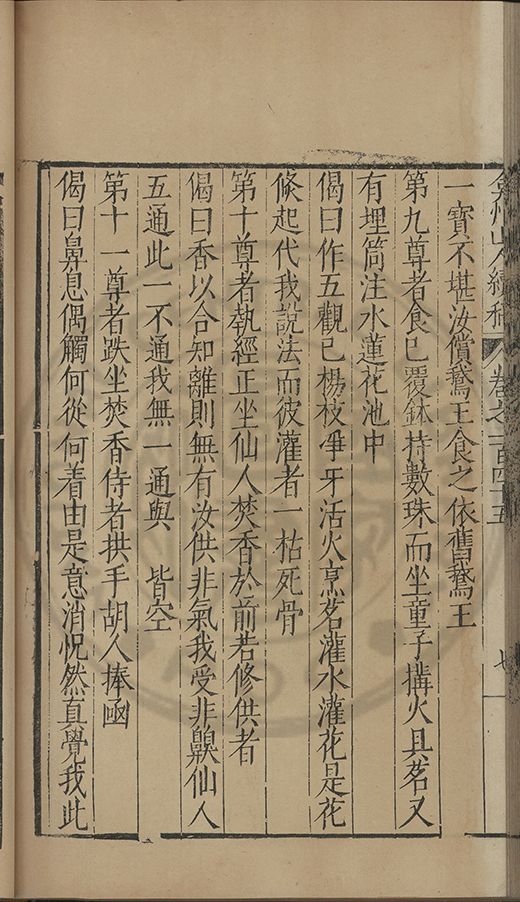 弇州山人續稿 卷之一百四十五 七
一寶不堪汝償鵞王食之依舊鵞王
第九尊者食已覆鉢持數珠而坐童子搆火具茗又
有埋筒注水蓮花池中
偈曰作五觀已楊枝爭牙活火烹茗灌水灌花是花
倐起代我說法而彼灌者一枯死骨
第十尊者執經正坐仙人焚香於前若修供者
偈曰香以合知離則無有汝供非氣我受非齅仙人
五通此一不通我無一通與 皆空
第十一尊者趺坐焚香侍者拱手胡人捧函
偈曰鼻息偶觸何從何着由是意消怳然直覺我此